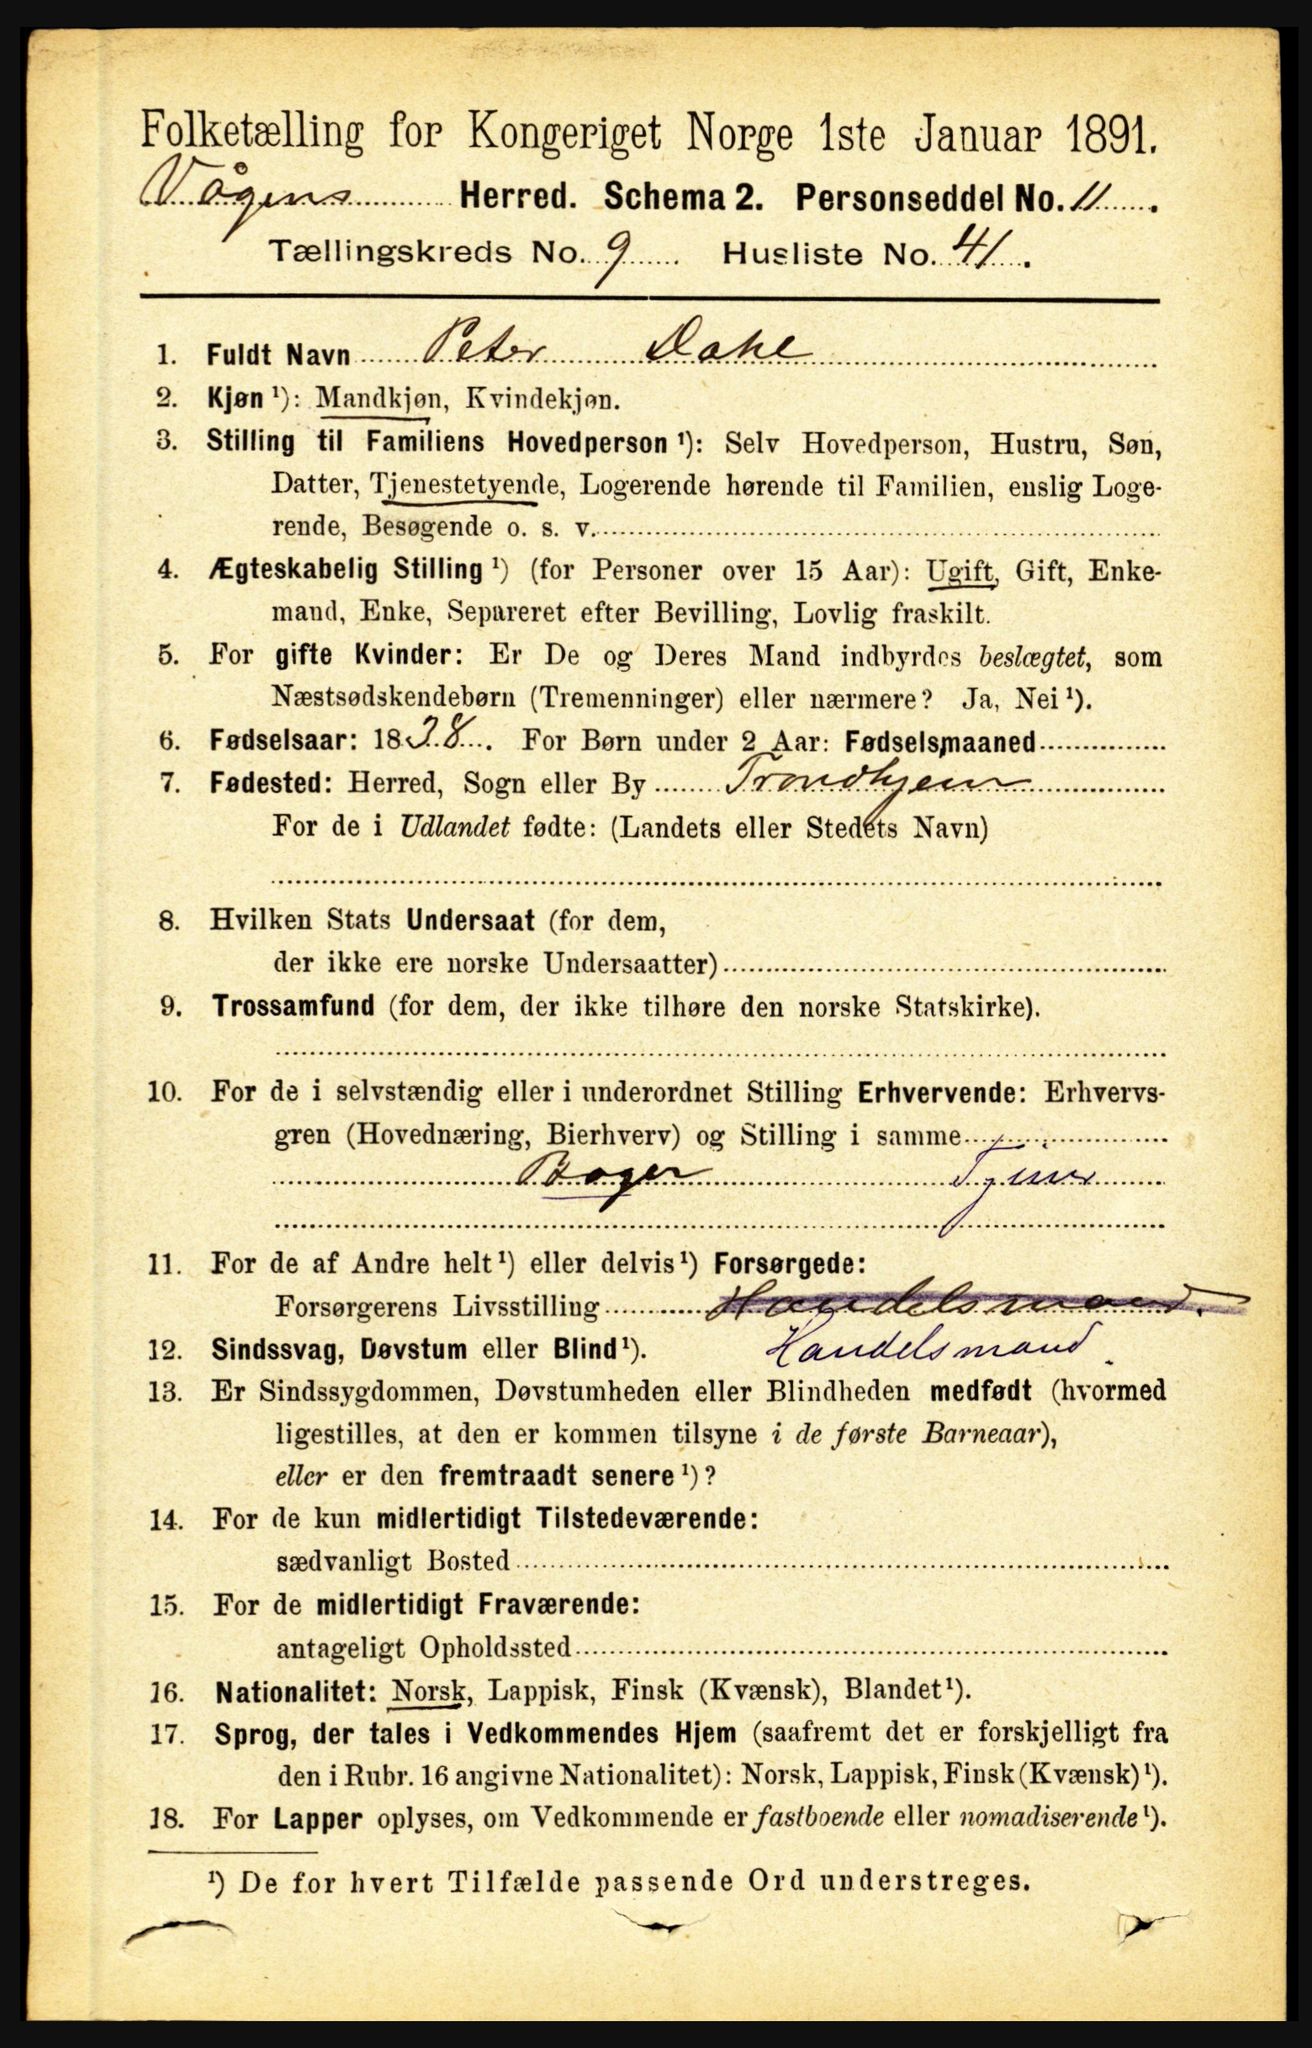 Folketælling for Kongeriget Norge 1ste Januar 1891.
Vågens Herred. Schema 2. Personseddel No. 11.
Tællingskreds No. 9 Husliste No. 41.
1. Fuldt Navn Peter Dahl
2. Kjøn ¹): Mandkjøn, Kvindekjøn.
3. Stilling til Familiens Hovedperson ¹): Selv Hovedperson, Hustru, Søn,
Datter, Tjenestetyende, Logerende hørende til Familien, enslig Loge-
rende, Besøgende o. s. v.
4. Ægteskabelig Stilling ¹) (for Personer over 15 Aar): Ugift, Gift, Enke-
mand, Enke, Separeret efter Bevilling, Lovlig fraskilt.
5. For gifte Kvinder: Er De og Deres Mand indbyrdes beslægtet, som
Næstsødskendebørn (Tremenninger) eller nærmere? Ja, Nei ¹).
6. Fødselsaar: 1838. For Børn under 2 Aar: Fødselsmaaned
7. Fødested: Herred, Sogn eller By Trondhjem
For de i Udlandet fødte: (Landets eller Stedets Navn)
8. Hvilken Stats Undersaat (for dem,
der ikke ere norske Undersaatter)
9. Trossamfund (for dem, der ikke tilhøre den norske Statskirke).
10. For de i selvstændig eller i underordnet Stilling Erhvervende: Erhvervs-
gren (Hovednæring, Bierhverv) og Stilling i samme
Bager
11. For de af Andre helt ¹) eller delvis ¹) Forsørgede:
Forsørgerens Livsstilling Handelsmand.
12. Sindssvag, Døvstum eller Blind ¹). Handelsmand
13. Er Sindssygdommen, Døvstumheden eller Blindheden medfødt (hvormed
ligestilles, at den er kommen tilsyne i de første Barneaar),
eller er den fremtraadt senere ¹)?
14. For de kun midlertidigt Tilstedeværende:
sædvanligt Bosted
15. For de midlertidigt Fraværende:
antageligt Opholdssted
16. Nationalitet: Norsk, Lappisk, Finsk (Kvænsk), Blandet ¹).
17. Sprog, der tales i Vedkommendes Hjem (saafremt det er forskjelligt fra
den i Rubr. 16 angivne Nationalitet): Norsk, Lappisk, Finsk (Kvænsk) ¹).
18. For Lapper oplyses, om Vedkommende er fastboende eller nomadiserende ¹).
¹) De for hvert Tilfælde passende Ord understreges.